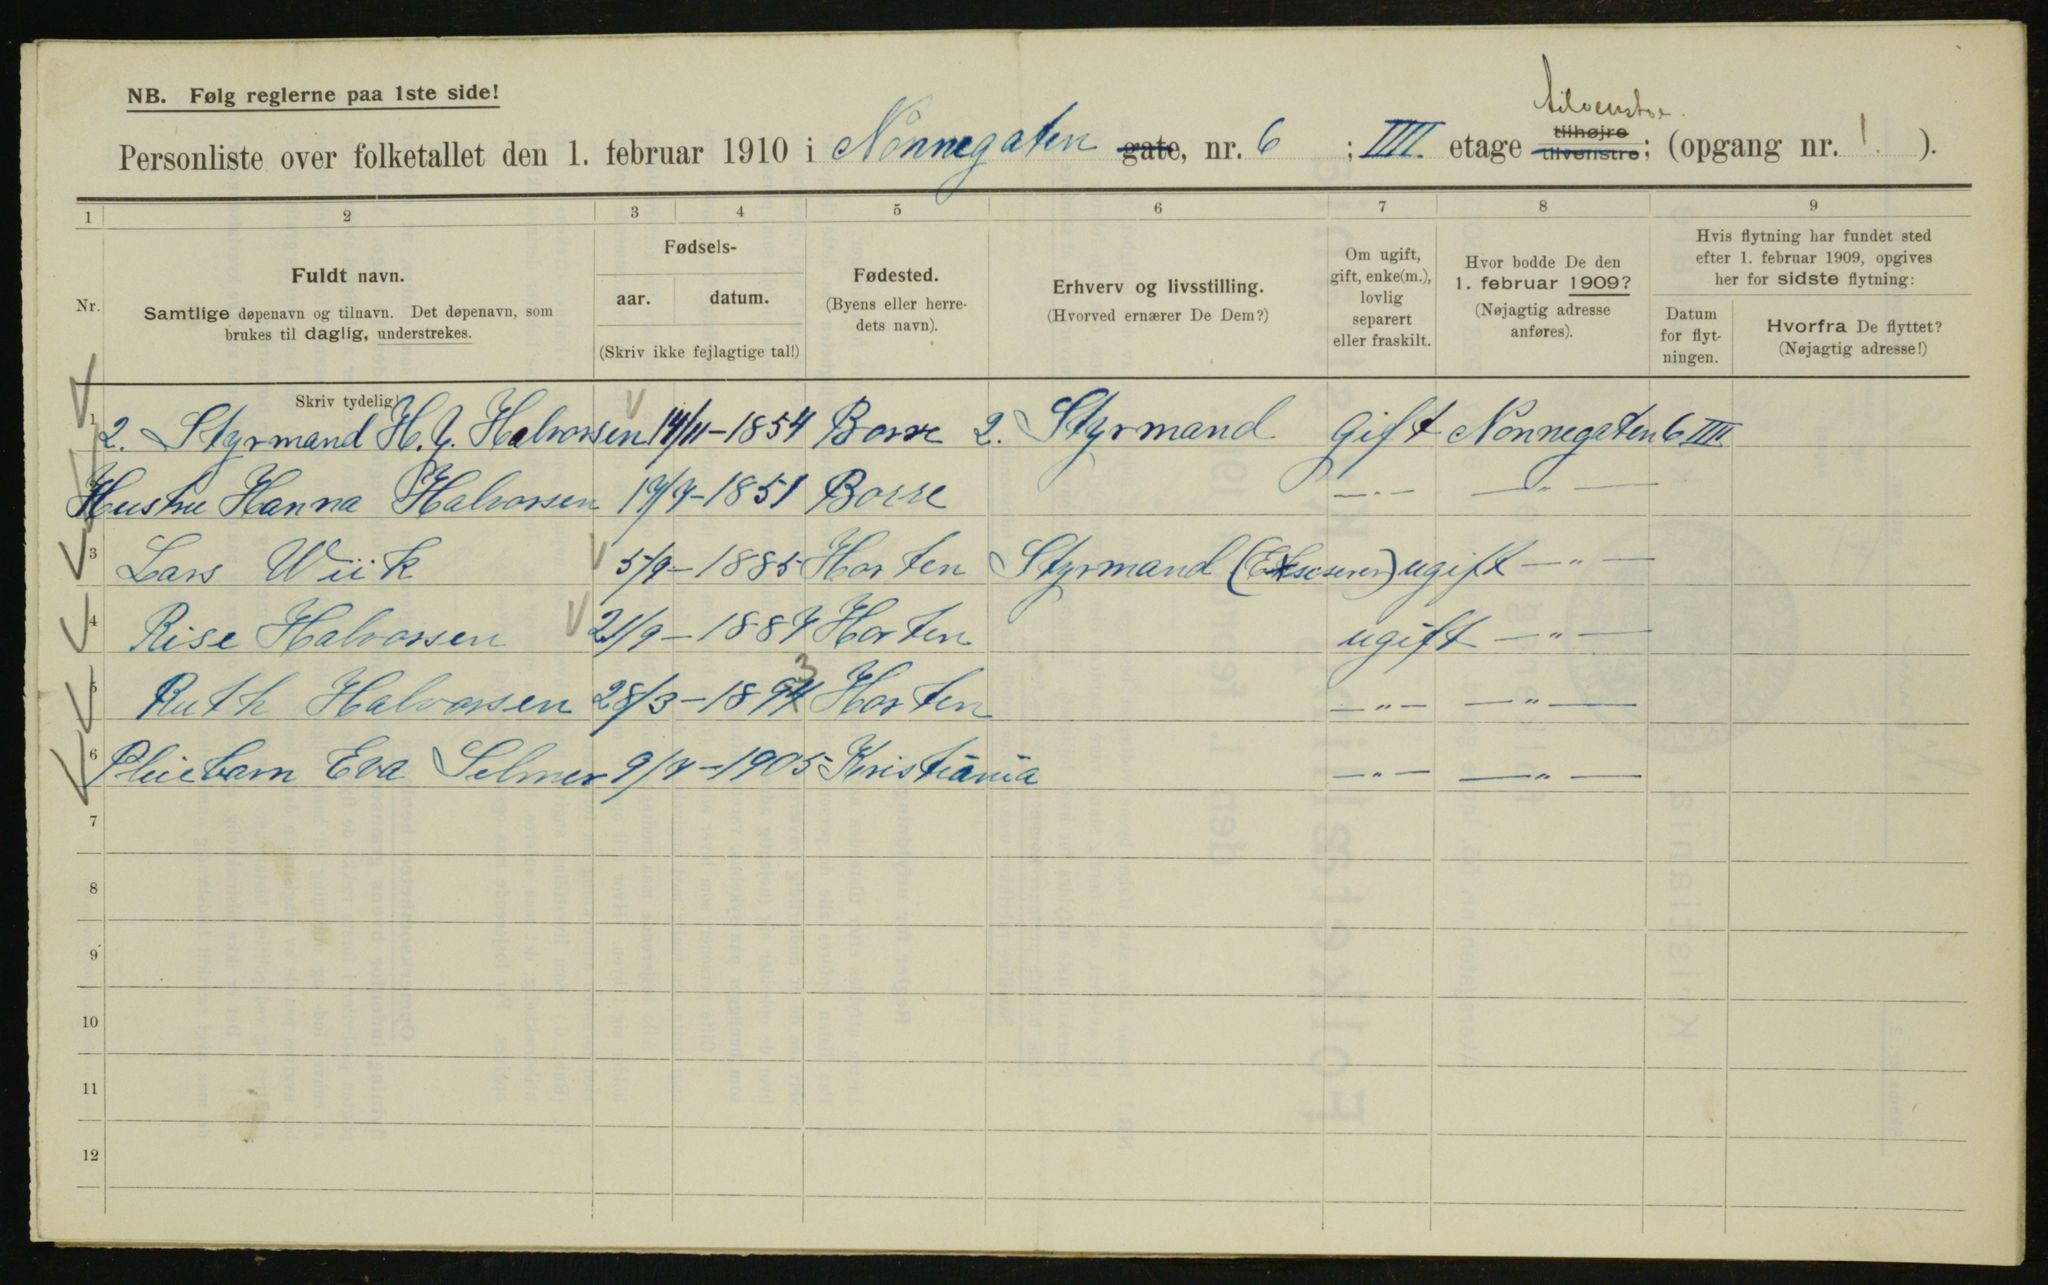 NB. Følg reglerne paa 1ste side!
tilvenstre.
Personliste over folketallet den 1. februar 1910 i Nonnegaten gate, nr. 6 ; IIII. etage tilhøjre tilvenstre; (opgang nr. 1. ).
1 2 3 4 5 6 7 8 9
Nr.
Fuldt navn.
Samtlige døpenavn og tilnavn. Det døpenavn, som
brukes til daglig, understrekes.
Skriv tydelig!
Fødsels-
aar. datum.
(Skriv ikke fejlagtige tal!)
Fødested.
(Byens eller herre-
dets navn).
Erhverv og livsstilling.
(Hvorved ernærer De Dem?)
Om ugift,
gift, enke(m.),
lovlig
separert
eller fraskilt.
Hvor bodde De den
1. februar 1909?
(Nøjagtig adresse
anføres).
Hvis flytning har fundet sted
efter 1. februar 1909, opgives
her for sidste flytning:
Datum
for flyt-
ningen.
Hvorfra De flyttet?
(Nøjagtig adresse!)
1 2. Styrmand H. J. Halvorsen 14/11-1854 Borre 2. Styrmand gift Nonnegaten 6 IIII
Hustru Hanna Halvorsen 17/7-1851 Borre —„— —„—
3 Lars Wiik 5/9-1885 Horten Styrmand ugift —„—
4 Rise Halvorsen 21/9-1887 Horten ugift —„—
5 Ruth Halvorsen 28/3-1894 3 Horten —„— —„—
6 Pleiebarn Eva Selmer 9/7-1905 Kristiania —„— —„—
7
8
9
10
11
12